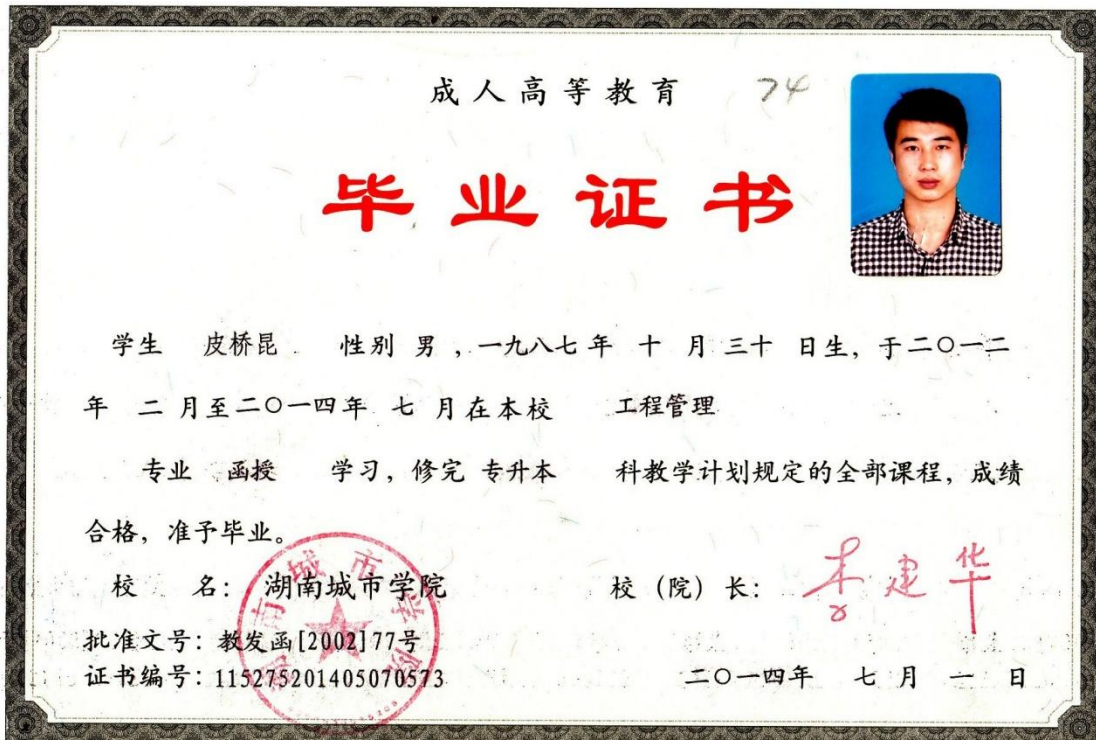 成人高等教育 74
毕业证书
学生 皮桥昆 性别 男 , 一九八七年 十 月 三十 日生, 于二〇一二
年 二 月至二〇一四年 七 月在本校 工程管理
专业 函授 学习, 修完 专升本 科教学计划规定的全部课程, 成绩
合格, 准予毕业。
校 名: 湖南城市学院 校 (院) 长: 李建华
批准文号: 教发函[2002]77号
证书编号: 115275201405070573 二〇一四年 七 月 一 日
湖南城市学院